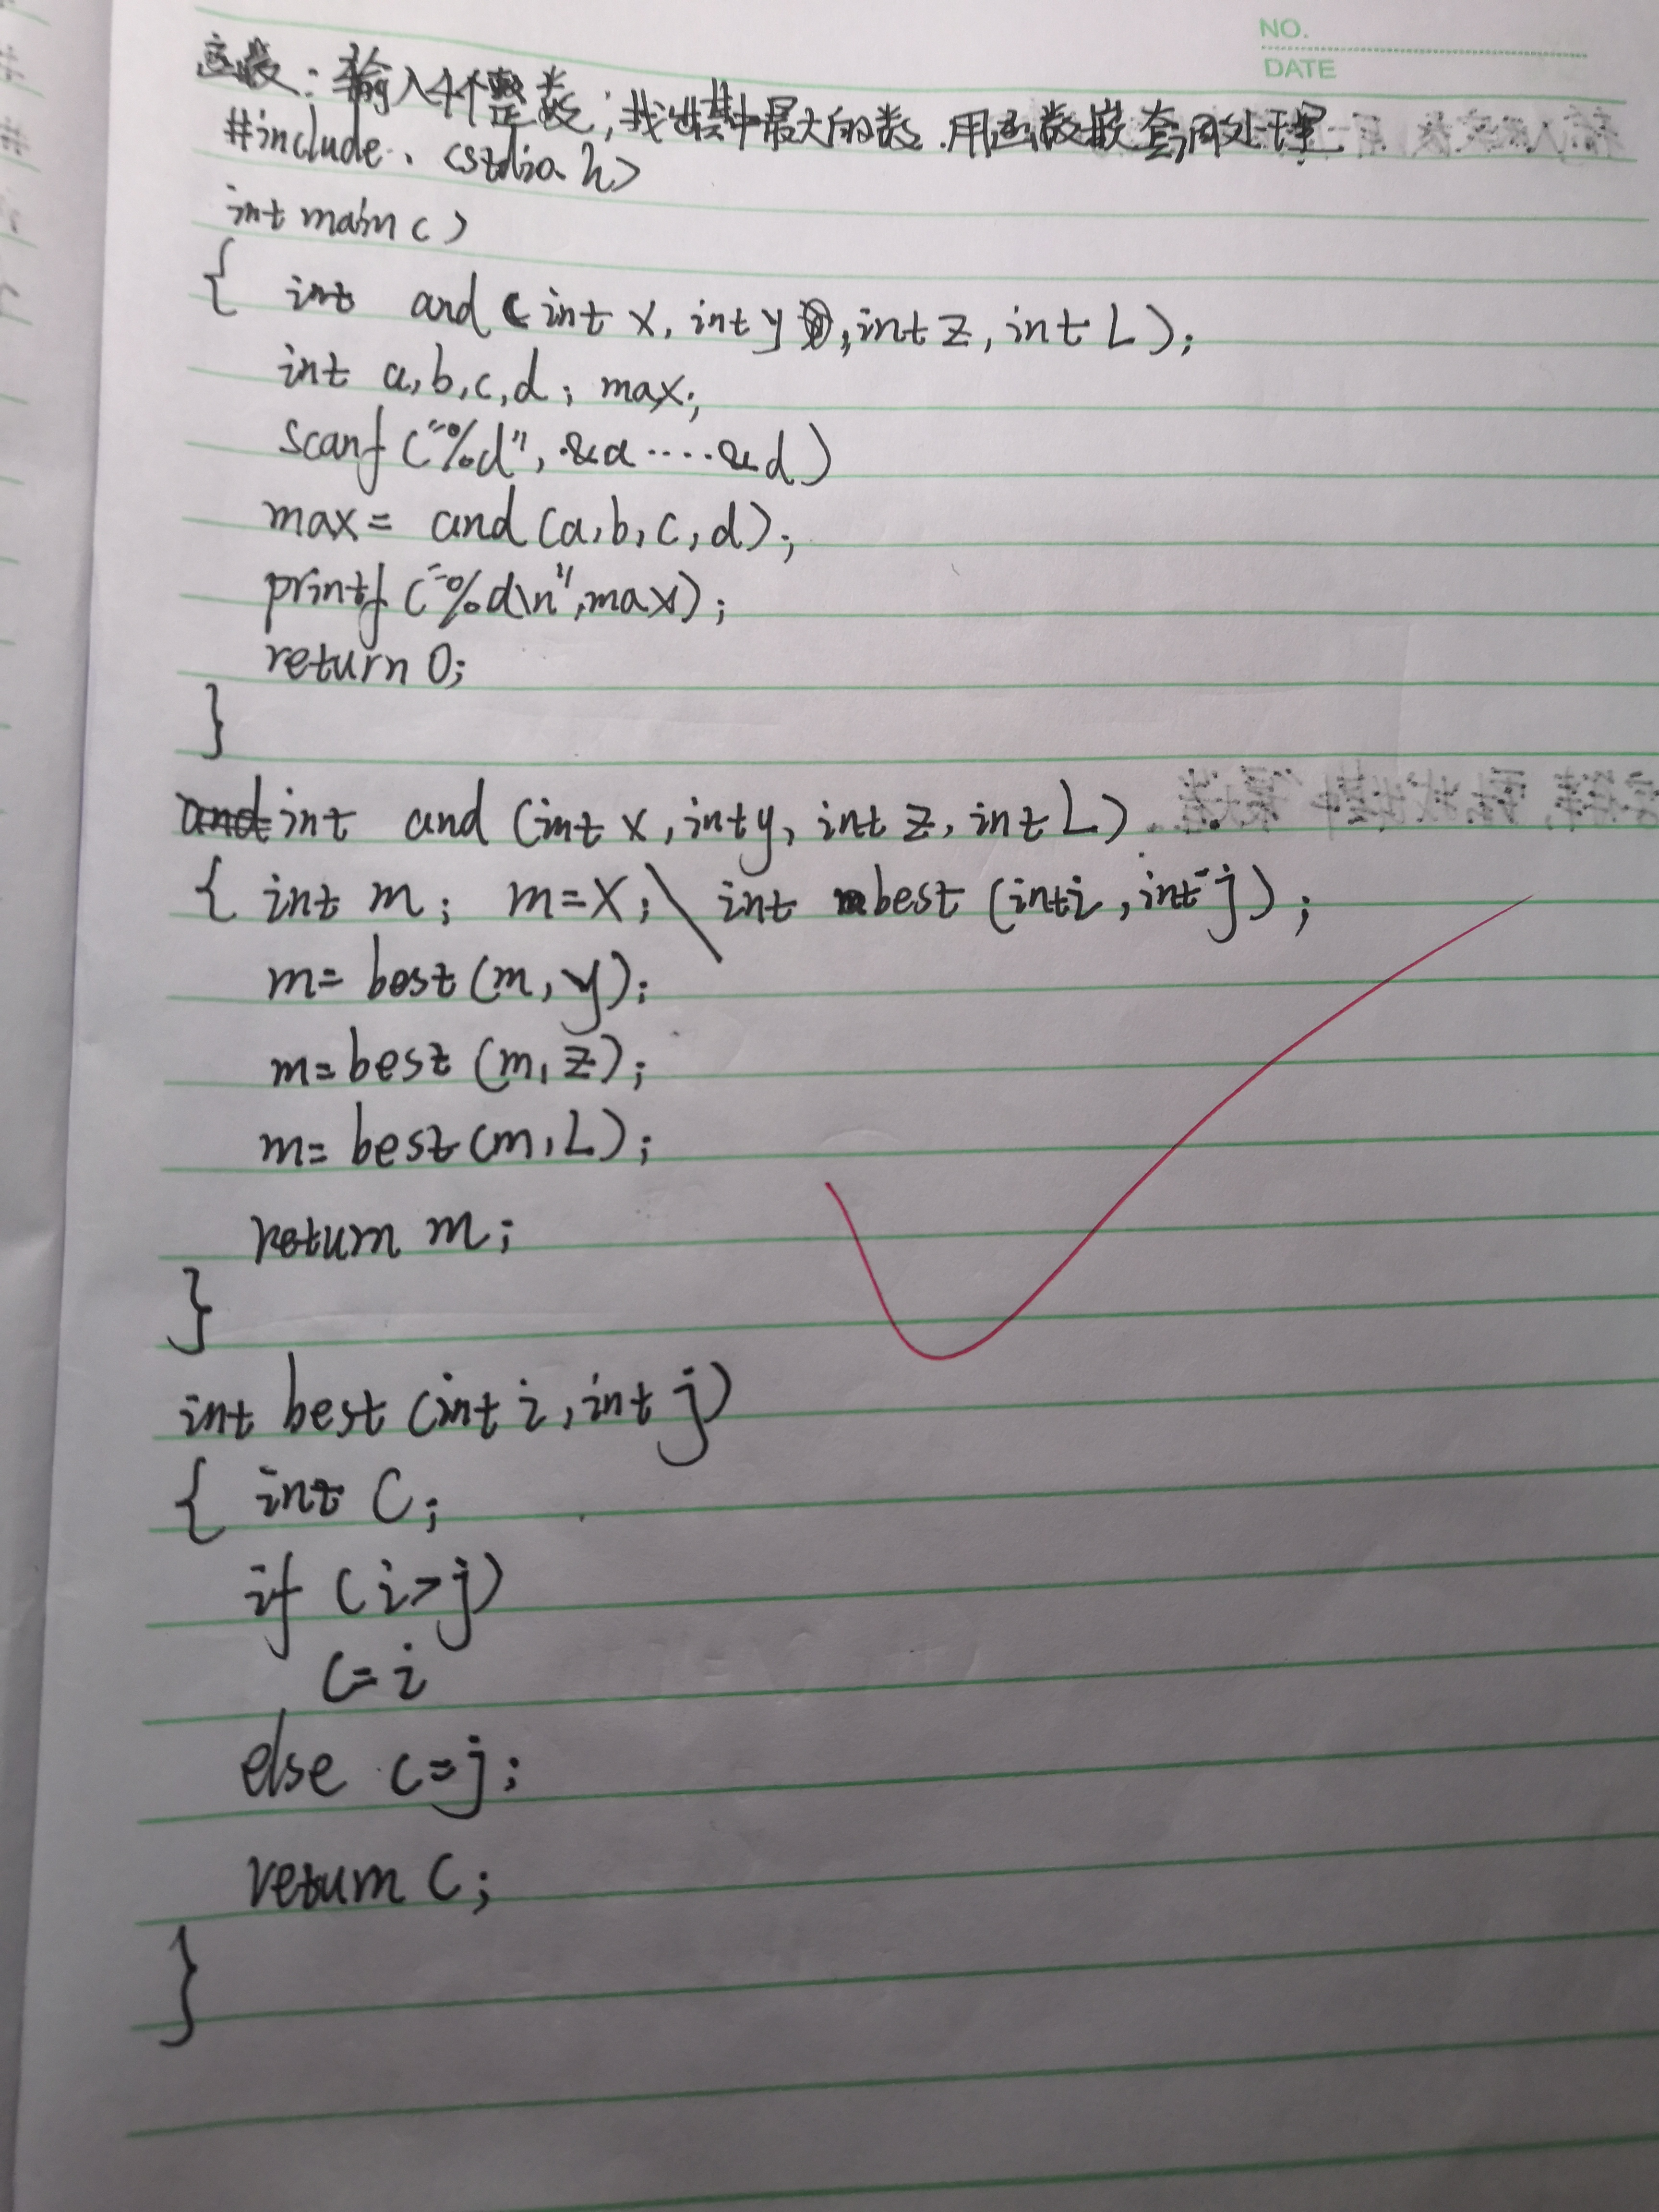 NO.
DATE
函数:输入4个整数,找出其中最大的数.用函数嵌套调处理
#include <stdio.h>
int main()
{ int and (int x, int y, int z, int L);
int a,b,c,d; max;
scanf("%d", &a ···· &d)
max= and (a,b,c,d);
printf("%d\n",max);
return 0;
}
int and (int x, int y, int z, int L)
{ int m; m=x; \ int best (int i, int j);
m= best (m, y);
m= best (m, z);
m= best (m, L);
return m;
}
int best (int i, int j)
{ int C;
if (i>j)
C= i
else c=j;
return C;
}